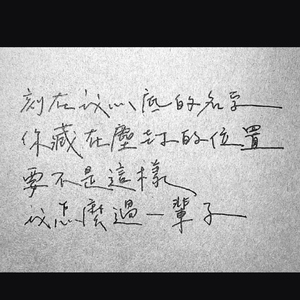 刻在我心底的名字
你藏在塵封的位置
要不是這樣
我怎麼過一輩子